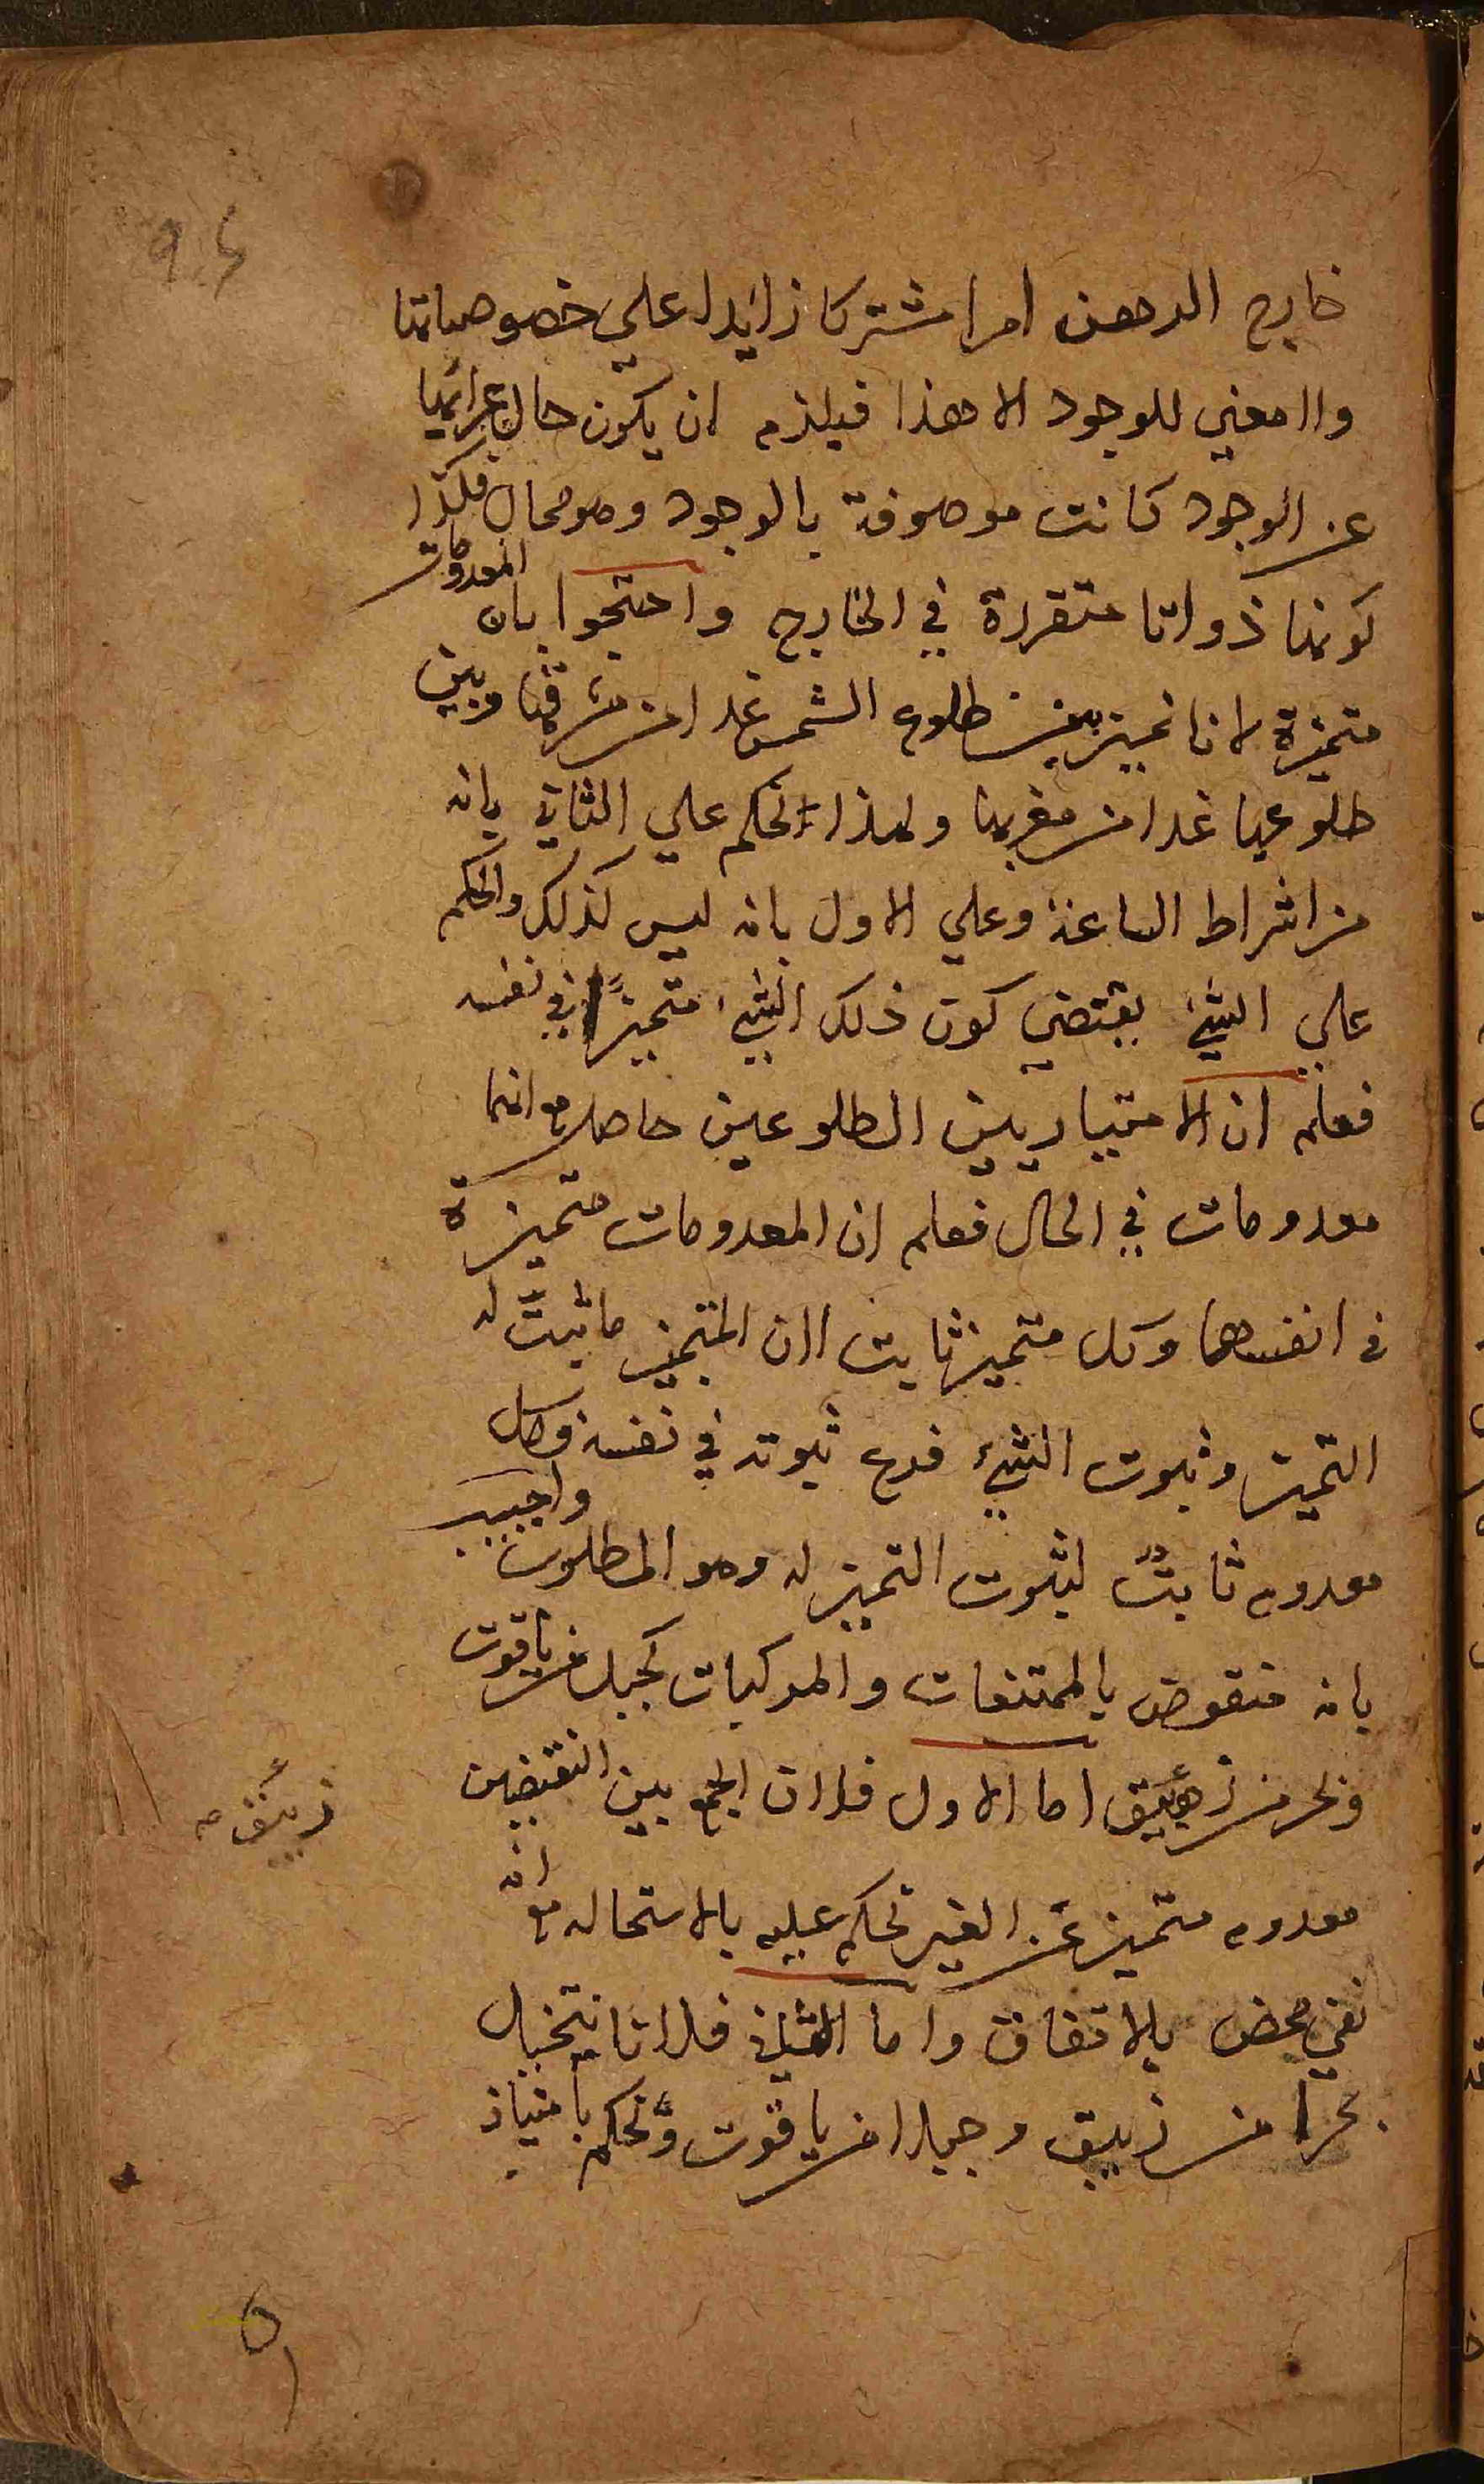 خارج الدهن امرا مشتركا زايدا علي خصوصياتها
واا معني للوجود الا هذا فيلزم ان يكون حال عرائها
عن الوجود كانت موصوفة بالوجود وهو محال فكذا
كونها ذواتا متقررة في الخارج واحتجوا بان المعدومات
متميزة لانا نميز بين طلوع الشمس غدا من مشرقها وبين
طلوعها غدا من مغربها ولهذا نحكم علي الثاني بانه
من اشراط الساعة وعلي الاول بانه ليس كذلك والحكم
علي الشيء يقتضي كون ذلك الشيء متميزًا في نفسه
فعلم ان الامتياز بين الطلوعين حاصل مع انهما
معدومات في الحال فعلم ان المعدومات متميزة
في انفسها وكل متميز ثابت اان المتميز ما ثبت له
التميز وثبوت الشيء فرع ثبوته في نفسه فكل
معدوم ثابتٌ لثبوت التميز له وهو المطلوب واجيب
بانه منقوض بالممتنعات والمركبات كجبل من ياقوت
وبحر من زيبق اما الاول فلاان الجمع بين النقيضين
زيبق صح
معدوم متميز عن الغير نحكم عليه بالاستحاله مع انه
نفي محض بالاتفاق واما الثاني فلانا نتخيل
بحرا من زيبق وجبلا من ياقوت ونحكم بامتياز